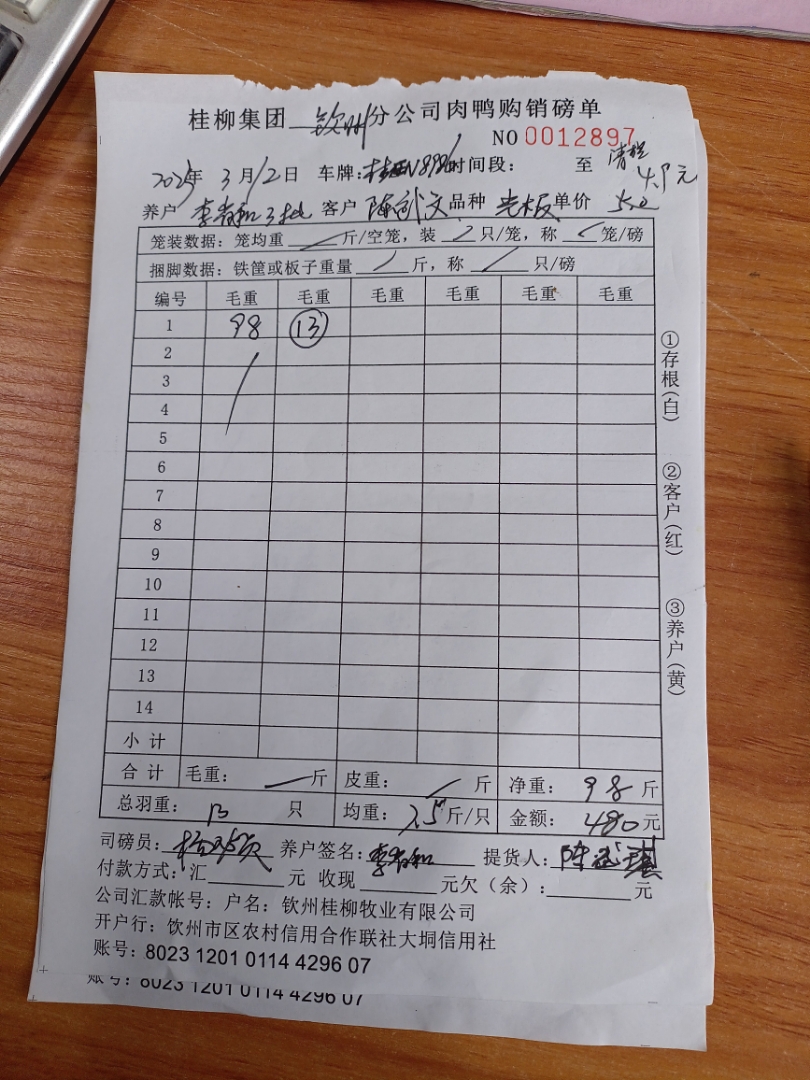 桂柳集团 钦州 分公司肉鸭购销磅单
NO 0012897
2025年 3月12日 车牌: 时间段: 至 清栏
4.9元
养户 李春和3批 客户 陈 文 品种 光板 单价
笼装数据: 笼均重 斤/空笼, 装 只/笼, 称 笼/磅
捆脚数据: 铁筐或板子重量 斤, 称 只/磅
编号 毛重 毛重 毛重 毛重 毛重 毛重
1 98 13
2
3
4
5
6
7
8
9
10
11
12
13
14
小计
合计 毛重: 斤 皮重: 斤 净重: 98 斤
总羽重: 13 只 均重: 7.5 斤/只 金额: 480 元
司磅员: 养户签名: 李春和 提货人: 陈
付款方式: 汇 元 收现 元欠(余): 元
公司汇款帐号: 户名: 钦州桂柳牧业有限公司
开户行: 钦州市区农村信用合作联社大垌信用社
账号: 8023 1201 0114 4296 07
账号: 8023 1201 0114 4296 07
①存根(白)
②客户(红)
③养户(黄)